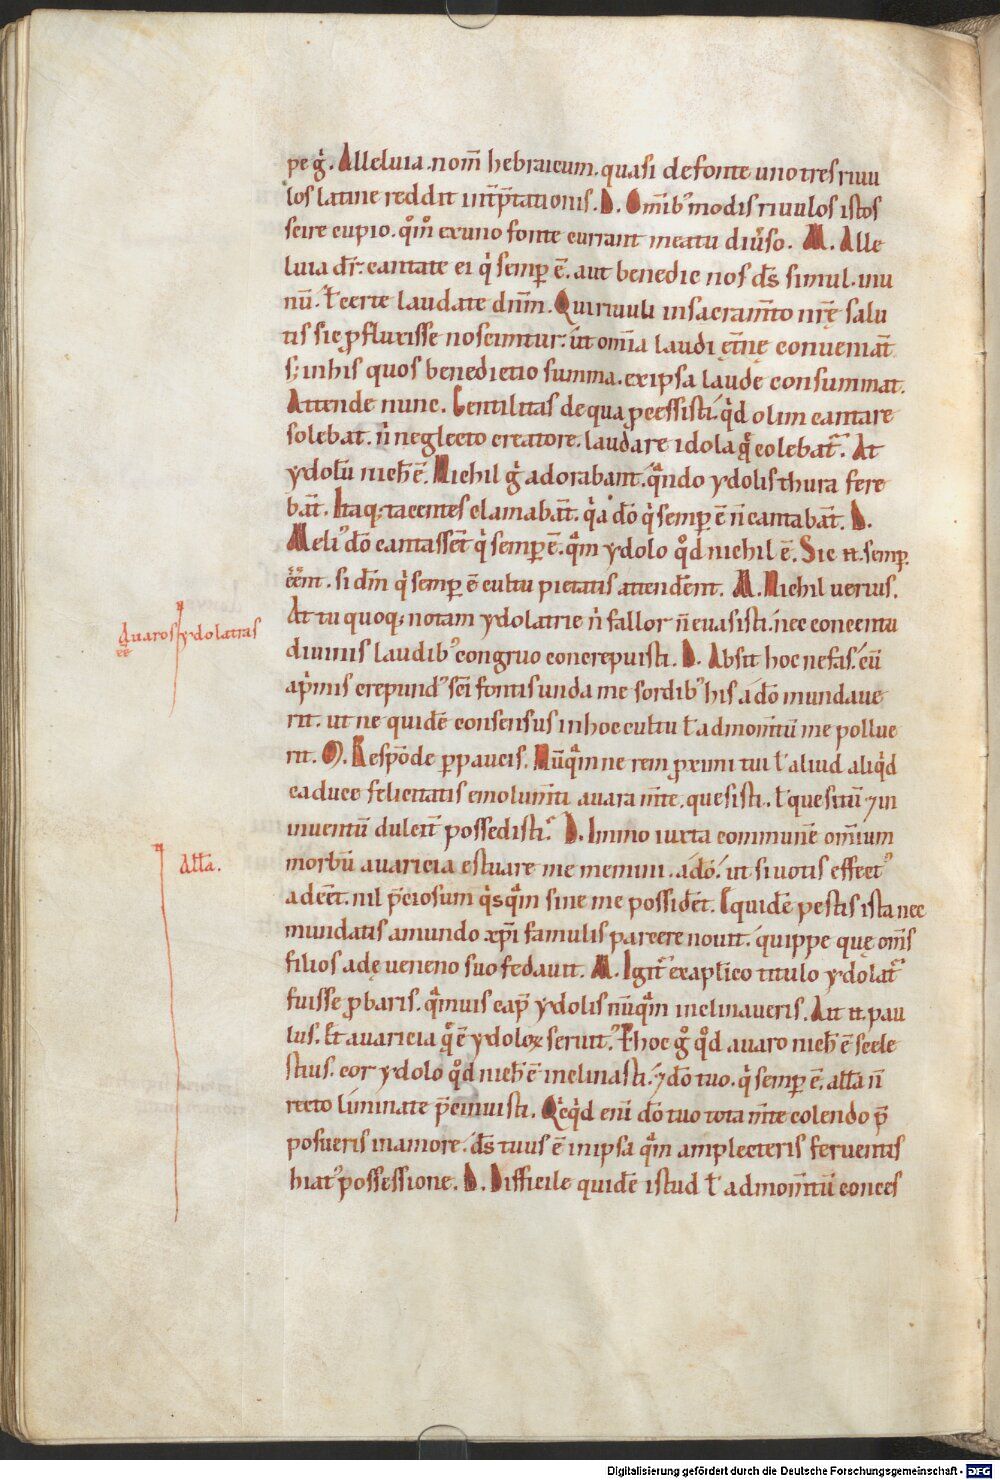 pe g̊. Alleluia. nom̅ hebraicum. quasi de fonte uno tres riuu
los latine reddit int̅p̅tationis. D. Omib᾿ modis riuulos istos
scire cupio. qm̅ ex uno fonte currant meatu diuso. M. Alle
luia dr̅. cantate ei q̇ semp̲ e̅. aut benedic nos ds̅ simul. in u
nu̅. ł certe laudate dn̅m. Qui riuuli in sacram̅to nr̅ę salu
tis sic p̲fluxisse noscuntur. ut om̅ia laudi ęt̅nę conueniat̅
s; in his quos benedictio summa. ex ipsa laude consummat.
Attende nunc. Gentilitas de qua p̲cessisti. qḋ olim cantare
solebat. n̅ neglecto creatore. laudare idola q̅ colebat̅. At
ydolu̅ nich̅ e̅. Nichil g̊ adorabant. qn̅do ydolis thura fere
bat̅. Itaq; tacentes clamaba̅t. q̇a do̅ q̇ semp̲ e̅ n̅ cantaba̅t. D.
Meli᾿ do̅ cantasse̅t q̇ semp̲ e̅. qm̅ ydolo qd̊ nichil e̅. Sic n̅. semp̲
ee̅nt. si dm̅ q̇ semp̲ e̅ cultu pietatis attende̅nt. M. Nichil uerius.
At tu quoq; notam ydolatrie n̅ fallor n̅ euasisti. nec concentu
diuinis laudib᾿ congruo concrepuisti. D. Absit hoc nefas. cu̅
a ṗmis crepund᾿ sc̅i fontis unda me sordib᾿ his a do̅ mundaue
rit. ut ne quide̅ consensus in hoc cultu ł admonitu̅ me pollue
rit. M. Respo̅de p̲ paucis. Nu̅qm̅ne rem p̲ximi tui ł aliud aliq̇d
caducę felicitatis emolum̅ti auara m̅te. quesisti. ł quesitu̅ ⁊ in
inuentu̅ dulcit̅ possedisti. D. Immo iuxta commune̅ om̅ium
morbu̅ auaricia estuare me memini. a do̅. ut si uotis effect᾿
adee̅t. nil p̅ciosum q̇sqm̅ sine me posside̅t. Equide̅ pestis ista nec
mundatis a mundo xp̅i famulis parcere nouit. quippe quę om̅s
filios adę ueneno suo fedauit. M. Igit̅ ex aplico titulo ydolat̅
fuisse p̲baris. qm̅uis cap̅ ydolis nu̅qm̅ inclinaueris. Ait n̅. pau
lus. Et auaricia q̅ e̅ ydoloꝝ seruit᾿. P̲ hoc g̊ qd̊ auaro nich̅ e̅ scele
stius. cor ydolo qd̊ nich̅ e̅ inclinasti. ⁊ do̅ tuo. q̇ semp̲ e̅. alła n̅
recto limitate p̅cinuisti. Qcq̇d eni̅ do̅ tuo tota m̅te colendo p̅
posueris in amore. ds̅ tuus e̅ in ipsa qm̅ amplecteris feruentis
hiat᾿ possessione. D. Difficile quide̅ istud ł admonitu̅ conces
Auaros ydolatras
ee̅
Alła.
Digitalisierung gefördert durch die Deutsche Forschungsgemeinschaft - DFG